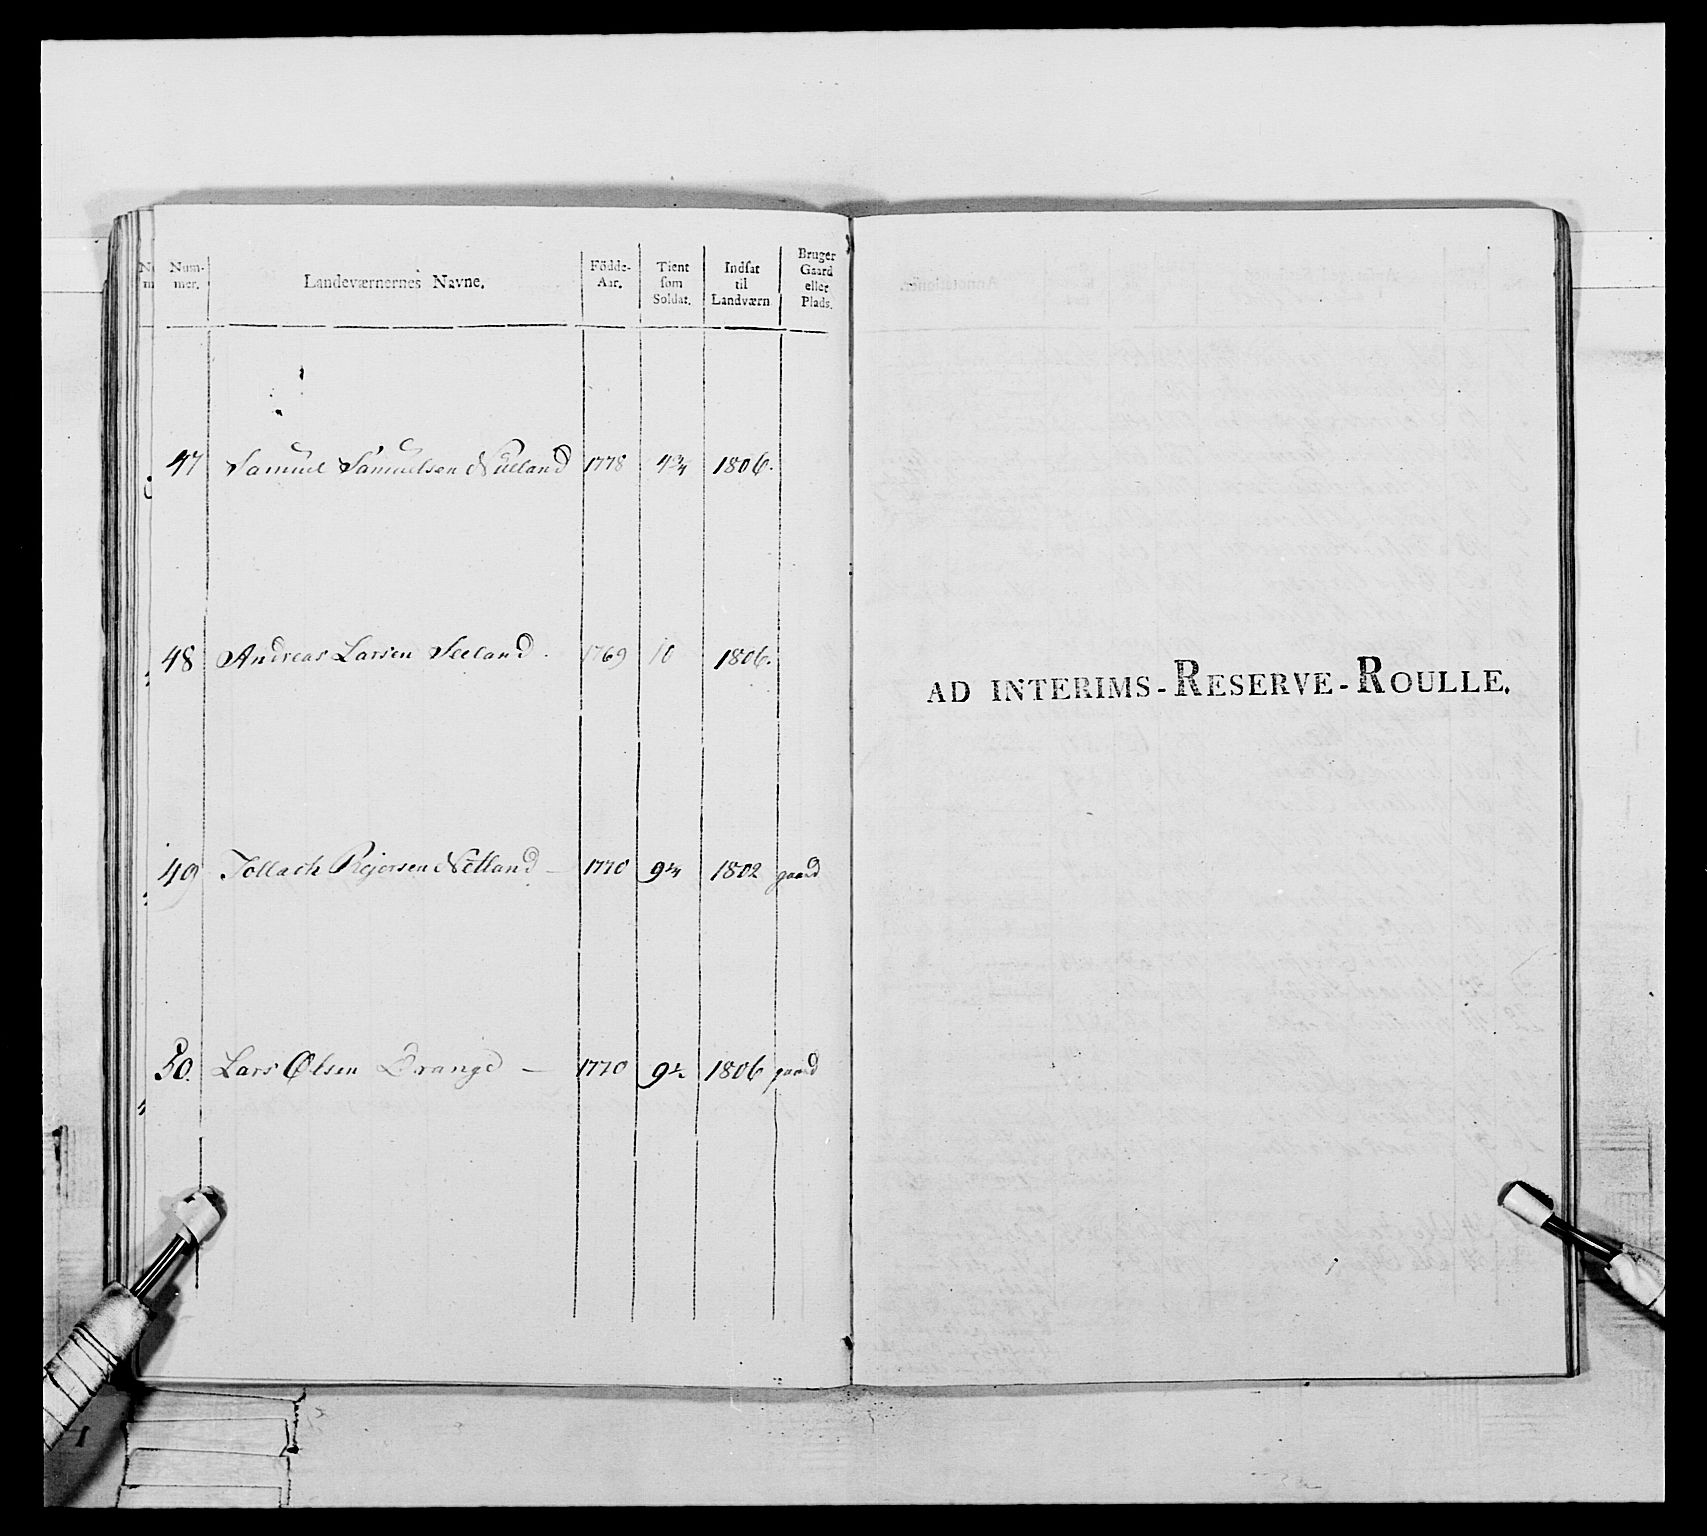 Num-mer. Landeværnernes Navne. Födde-Aar. Tient som Soldat. Indsat til Landværn Bruger Gaard eller Plads.
47 Samuel Samuelsen Nueland 1778 4¾ 1806.
48 Andreas Larsen Seeland. 1769 10 1806.
49 Tollach Rejersen Netland — 1770 9¼ 1802 gaard
50. Lars Olsen Drange — 1770 9½ 1806 gaard
AD INTERIMS-RESERVE-ROULLE.